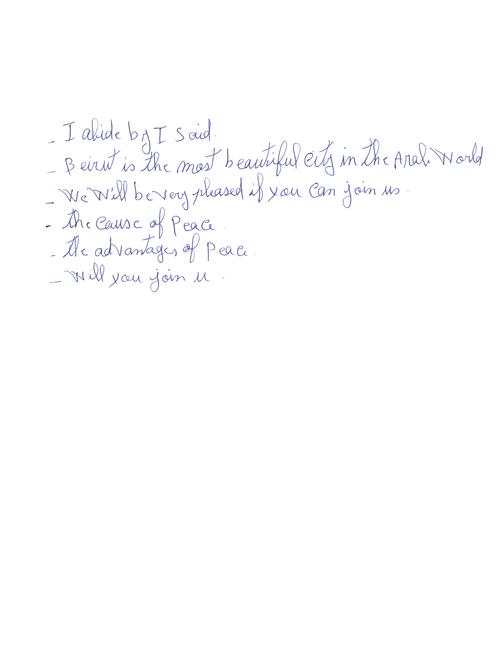 - I abide by I Said.
- Beirut is the most beautiful City in the Arab World
- We Will be very pleased if you Can join us.
- the Cause of Peace.
- the advantages of Peace.
- Will you join u.